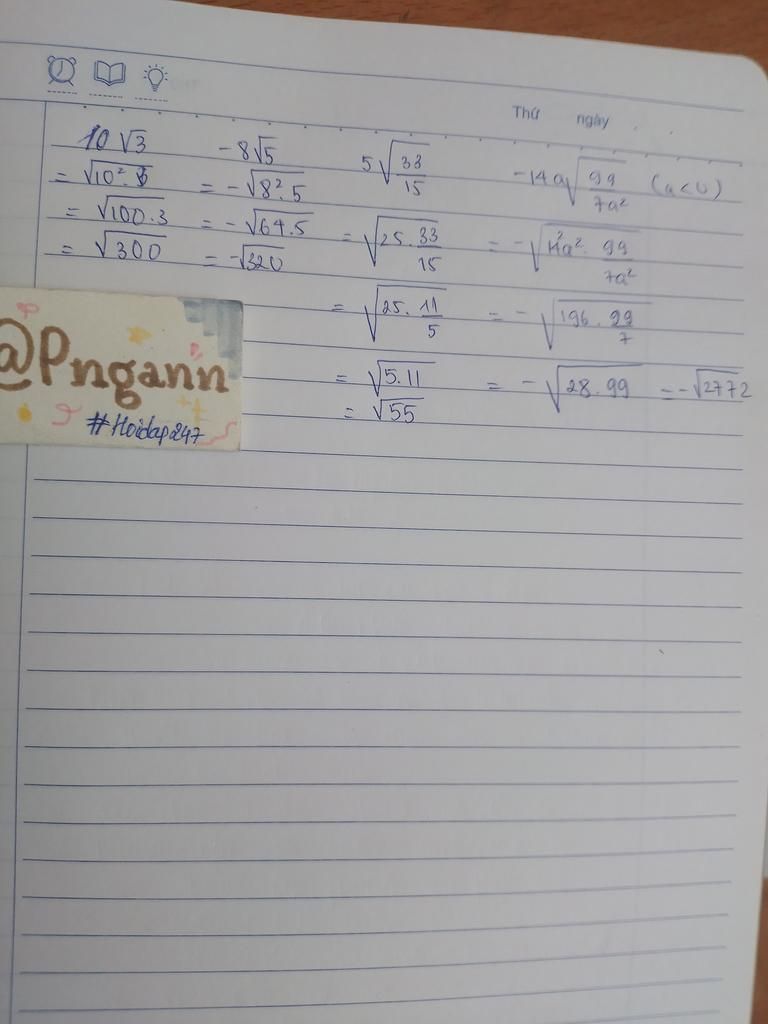 Thứ ngày
10√3
= √10².3
= √100.3
= √300
-8√5
= -√8².5
= -√64.5
= -√320
5√33/15
= √25.33/15
= √25.11/5
= √5.11
= √55
-14a√99/7a² (a<0)
= -√14²a².99/7a²
= -√196.99/7
= -√28.99 = -√2772
@Pngann
#Hoidap247